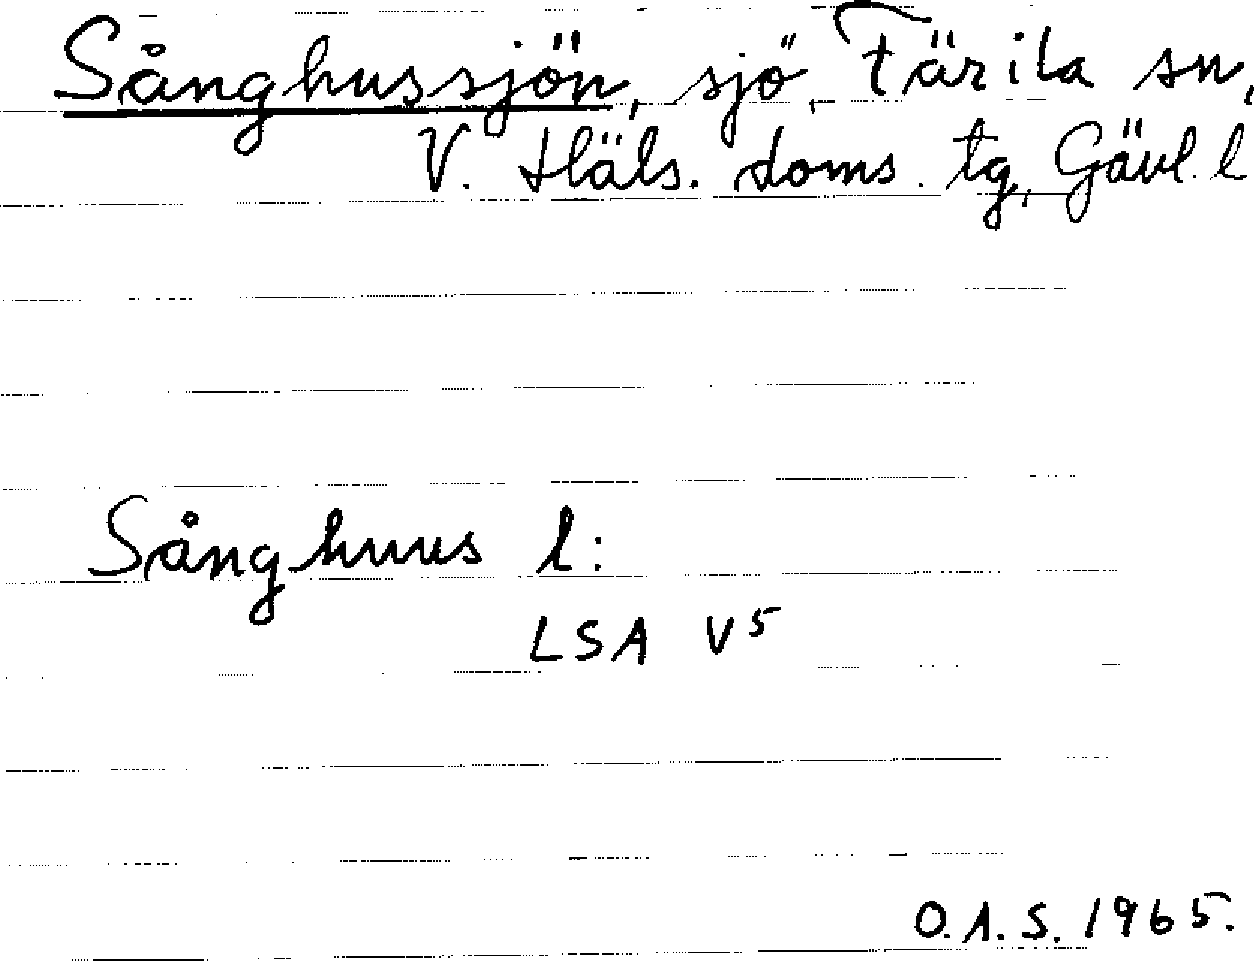 Sånghussjön, sjö, Färila sn,
V. Häls. doms. tg, Gävl. l
Sånghuus l:
LSA V5
O.A.S. 1965.